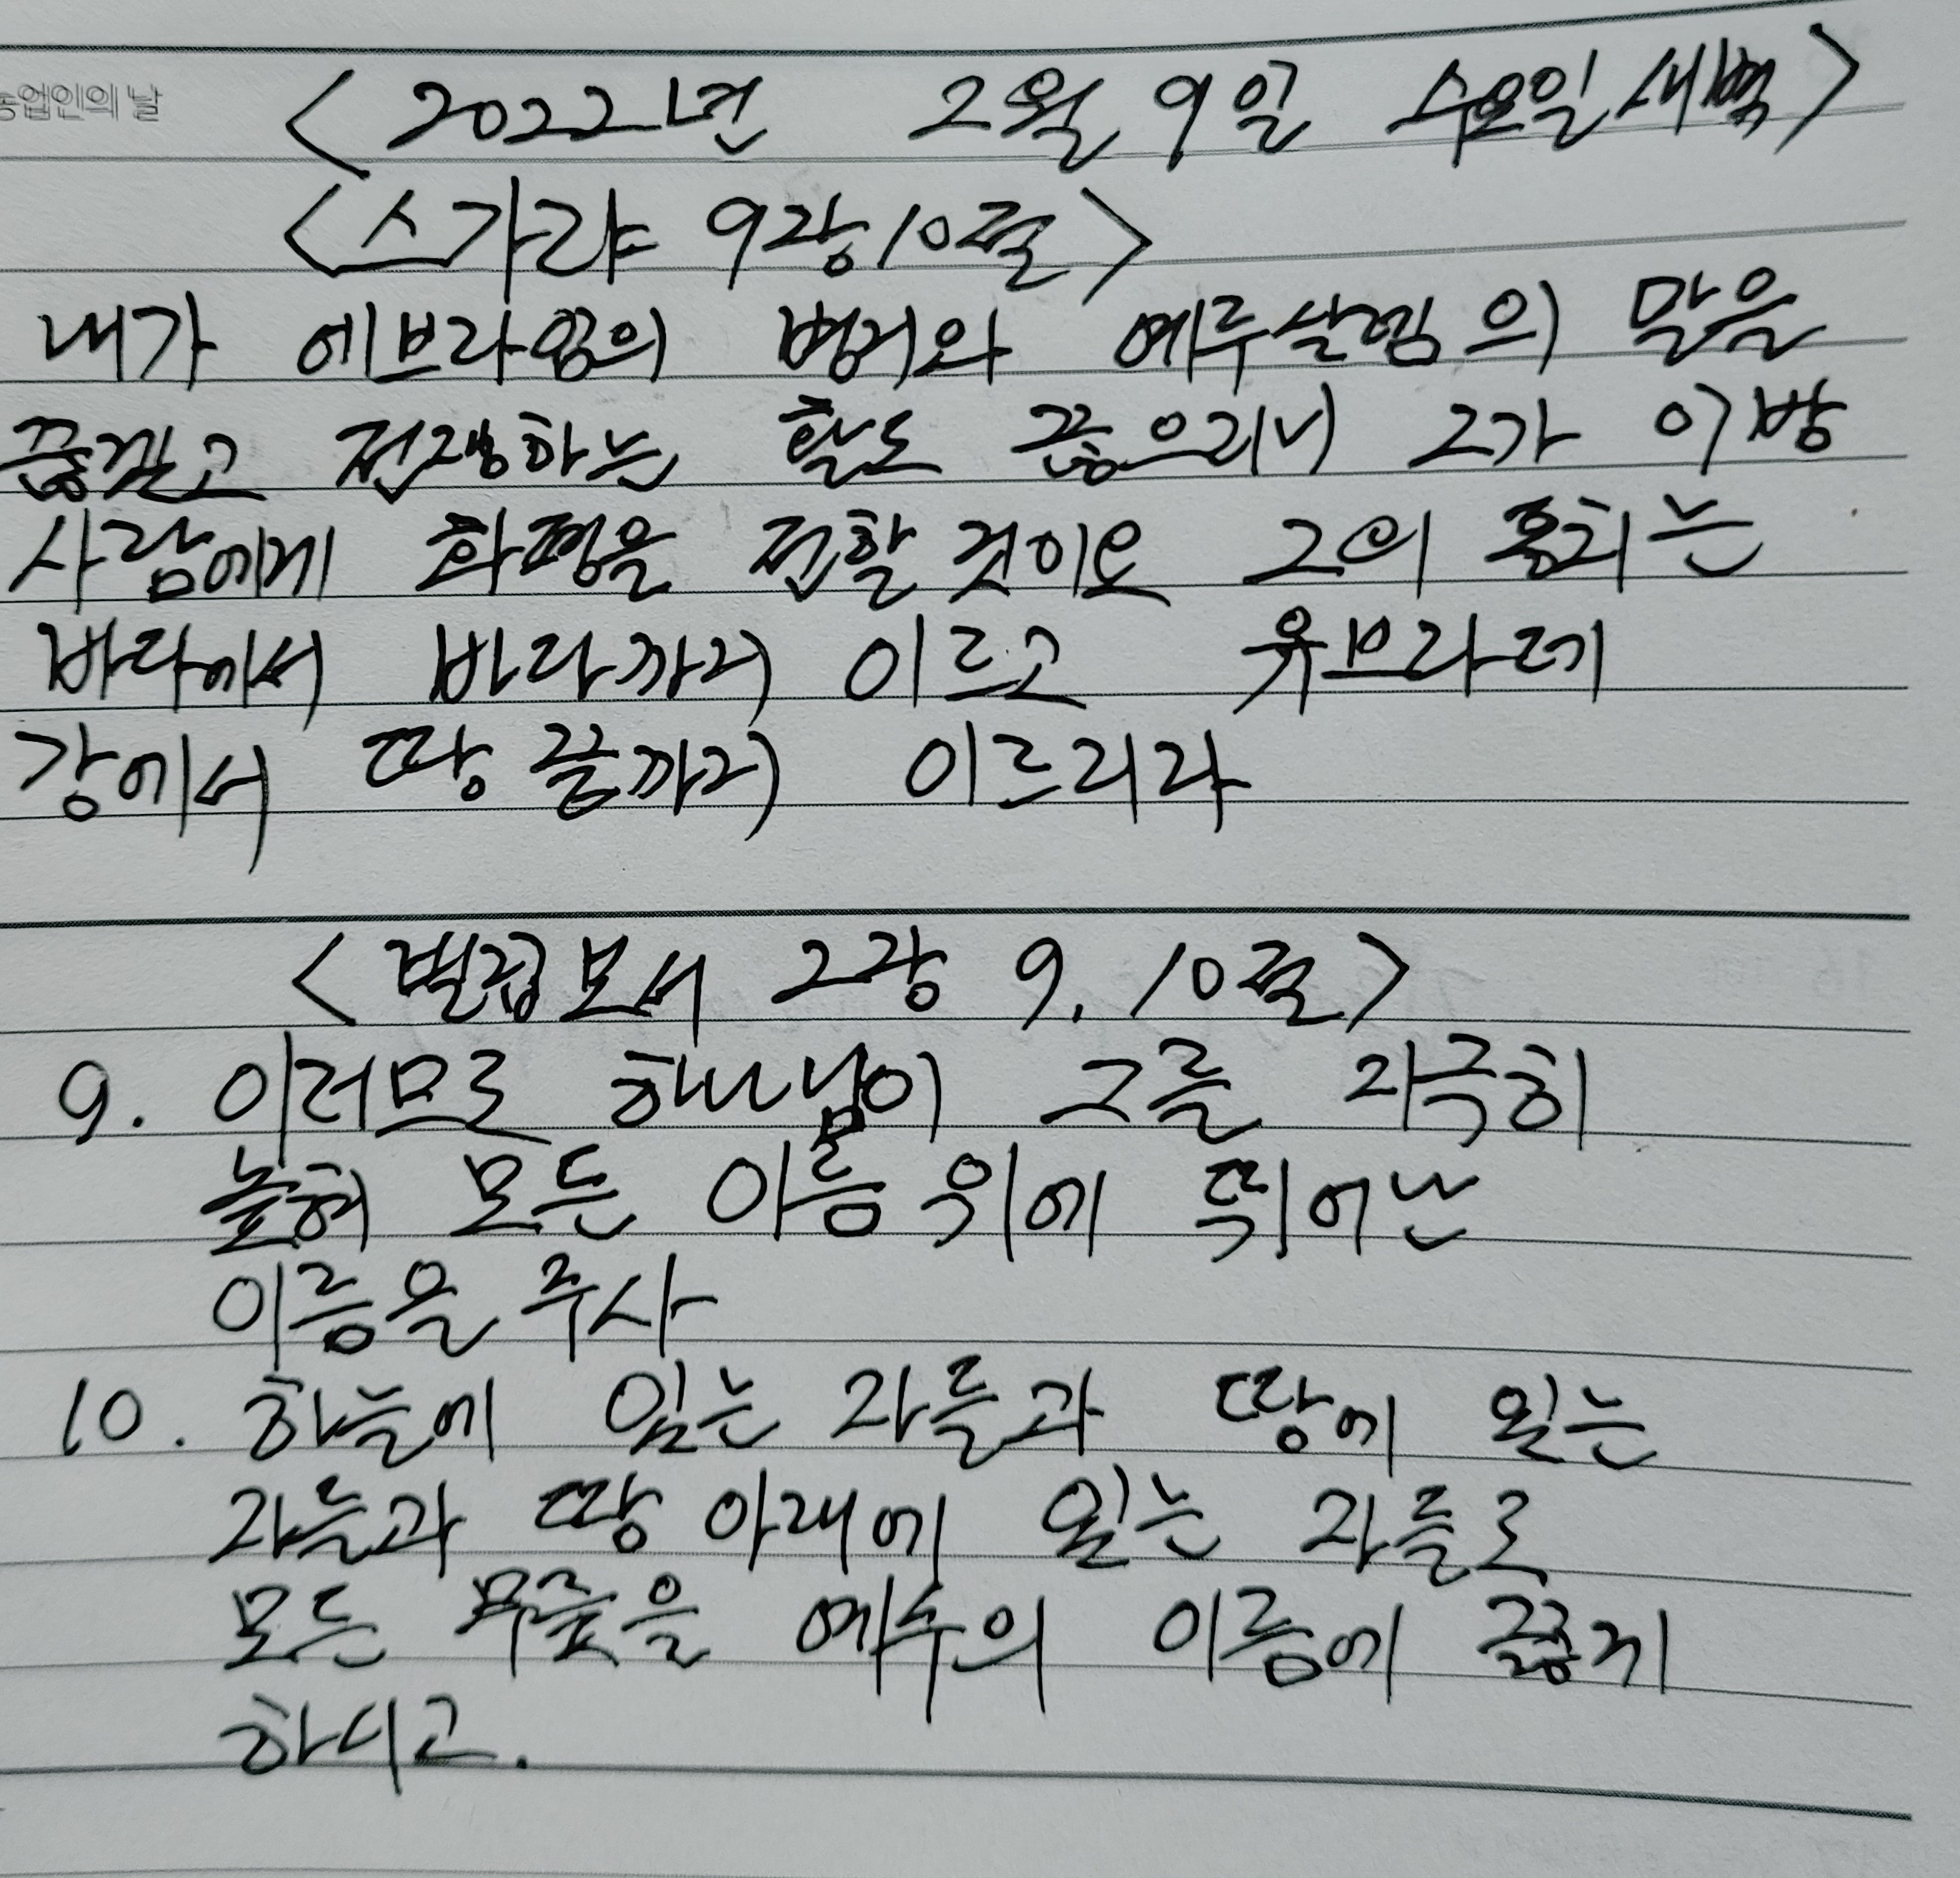 농업인의 날
< 2022년 2월 9일 수요일 새벽 >
<스가랴 9장 10절>
내가 에브라임의 병거와 예루살렘의 말을
끊겠고 전쟁하는 활도 끊으리니 그가 이방
사람에게 화평을 전할 것이요 그의 통치는
바다에서 바다까지 이르고 유브라데
강에서 땅 끝까지 이르리라
< 빌립보서 2장 9, 10절 >
9. 이러므로 하나님이 그를 지극히
높여 모든 이름 위에 뛰어난
이름을 주사
10. 하늘에 있는 자들과 땅에 있는
자들과 땅 아래에 있는 자들로
모든 무릎을 예수의 이름에 꿇게
하시고.